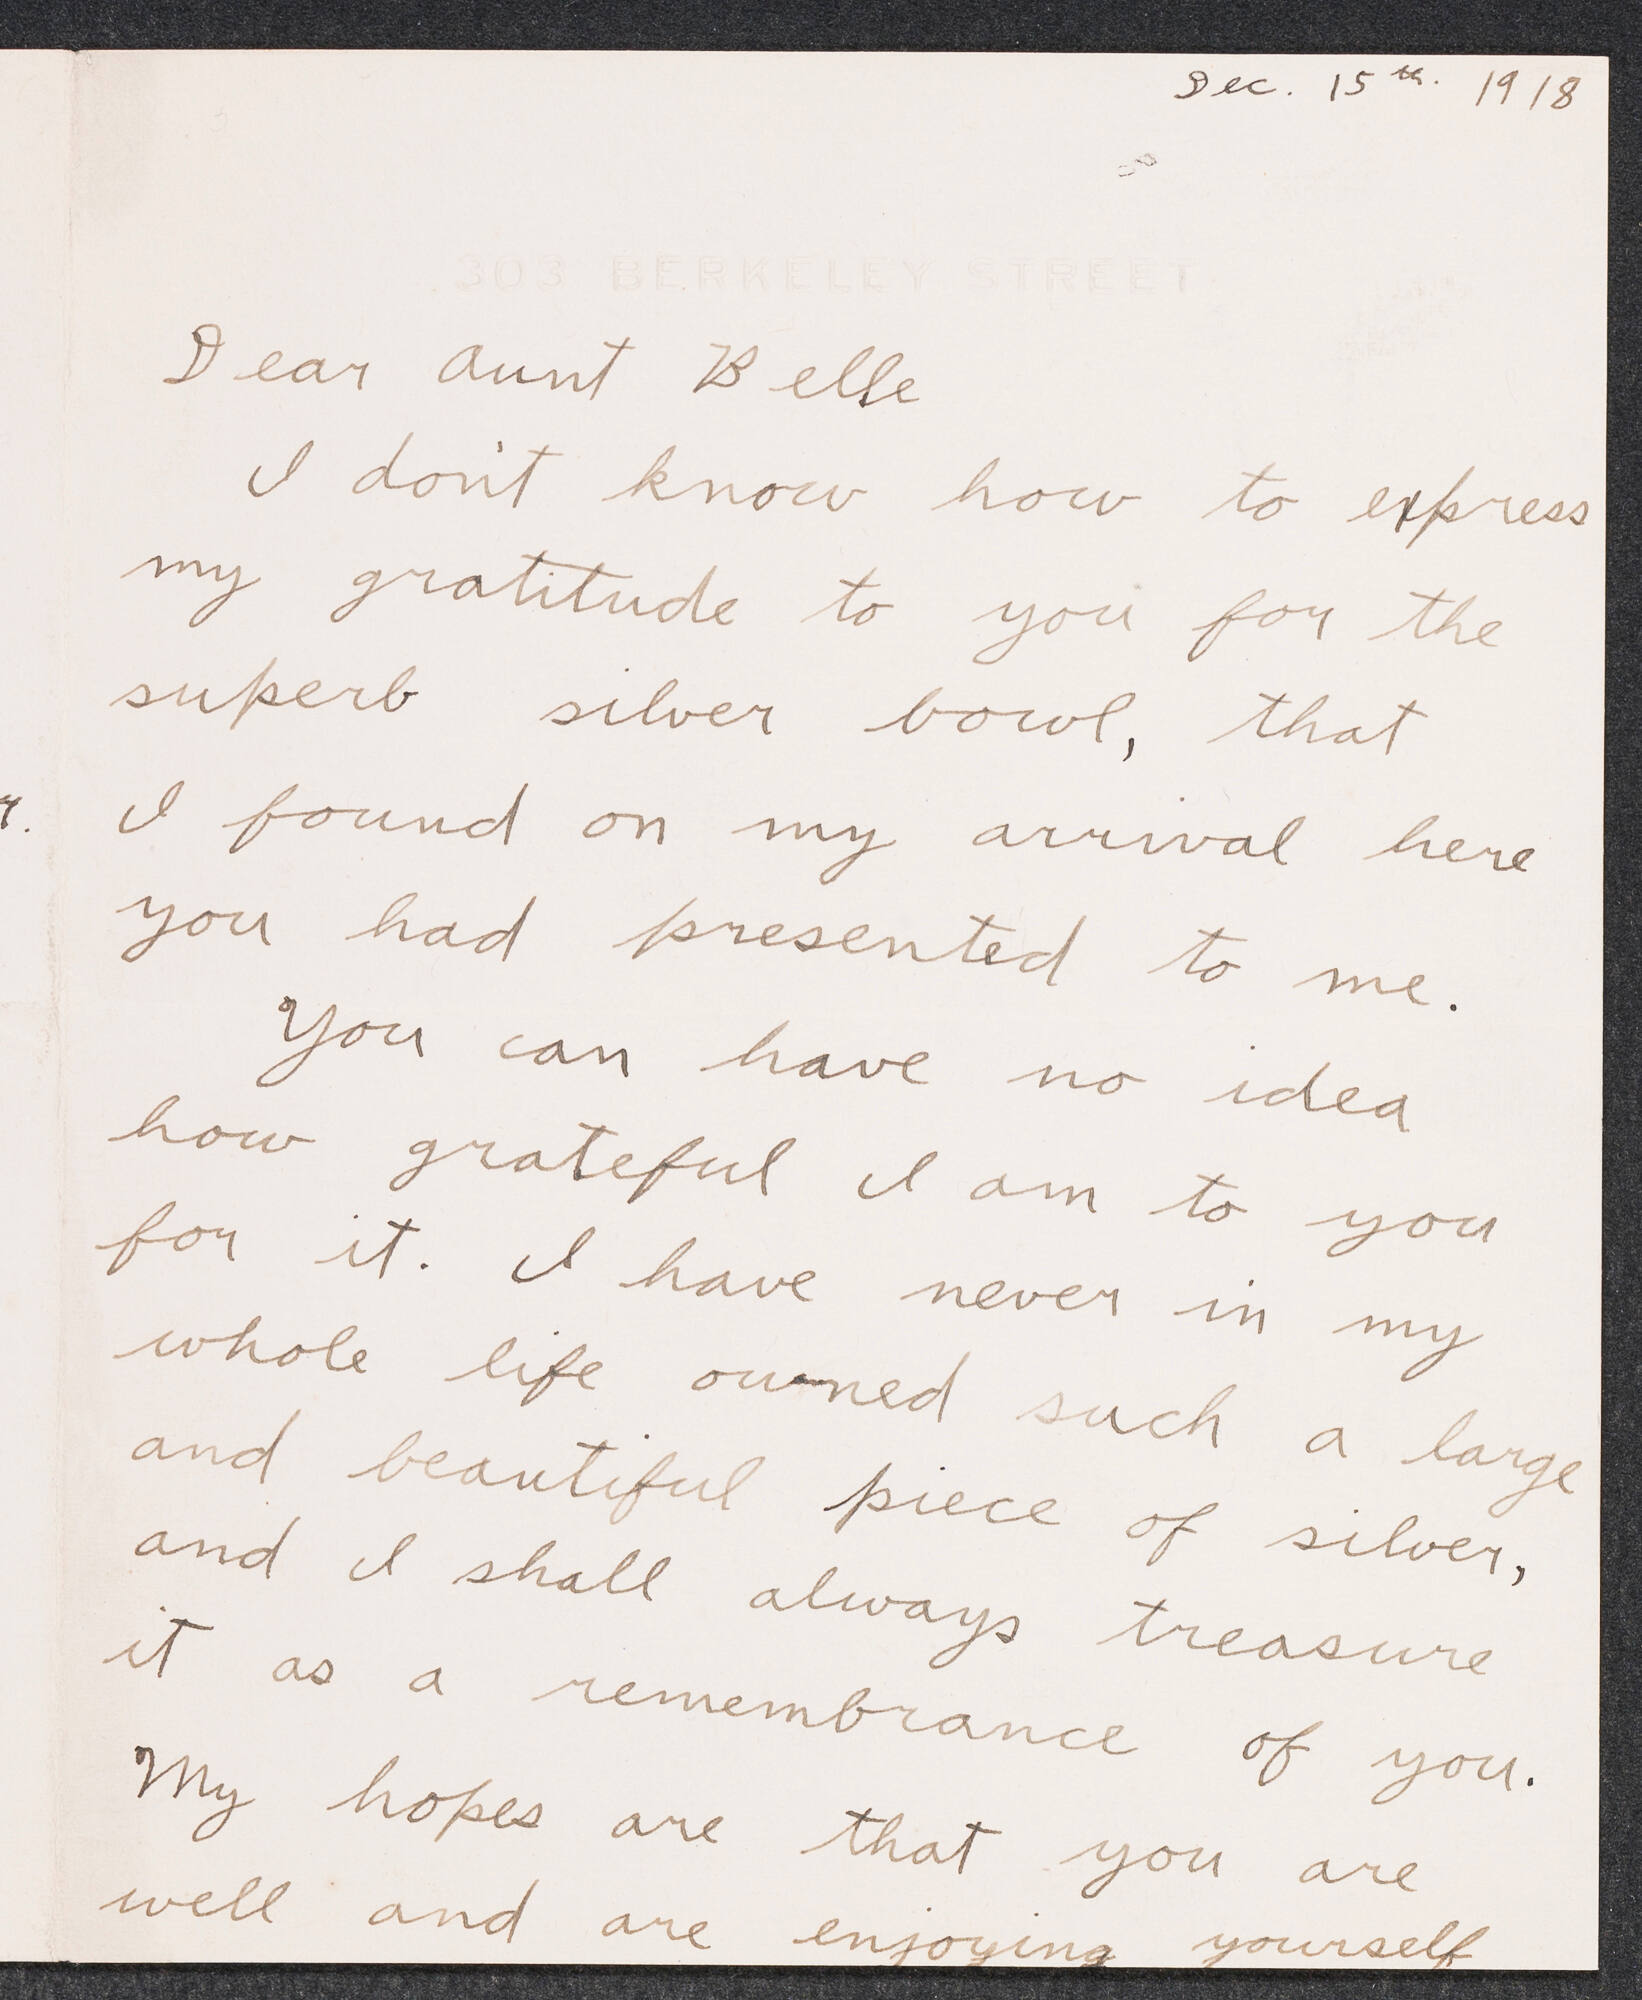 Dec. 15th. 1918
303 BERKELEY STREET
Dear Aunt Belle
I don't know how to express
my gratitude to you for the
superb silver bowl, that
I found on my arrival here
you had presented to me.
You can have no idea
how grateful I am to you
for it. I have never in my
whole life owned such a large
and beautiful piece of silver,
and I shall always treasure
it as a remembrance of you.
My hopes are that you are
well and are enjoying yourself